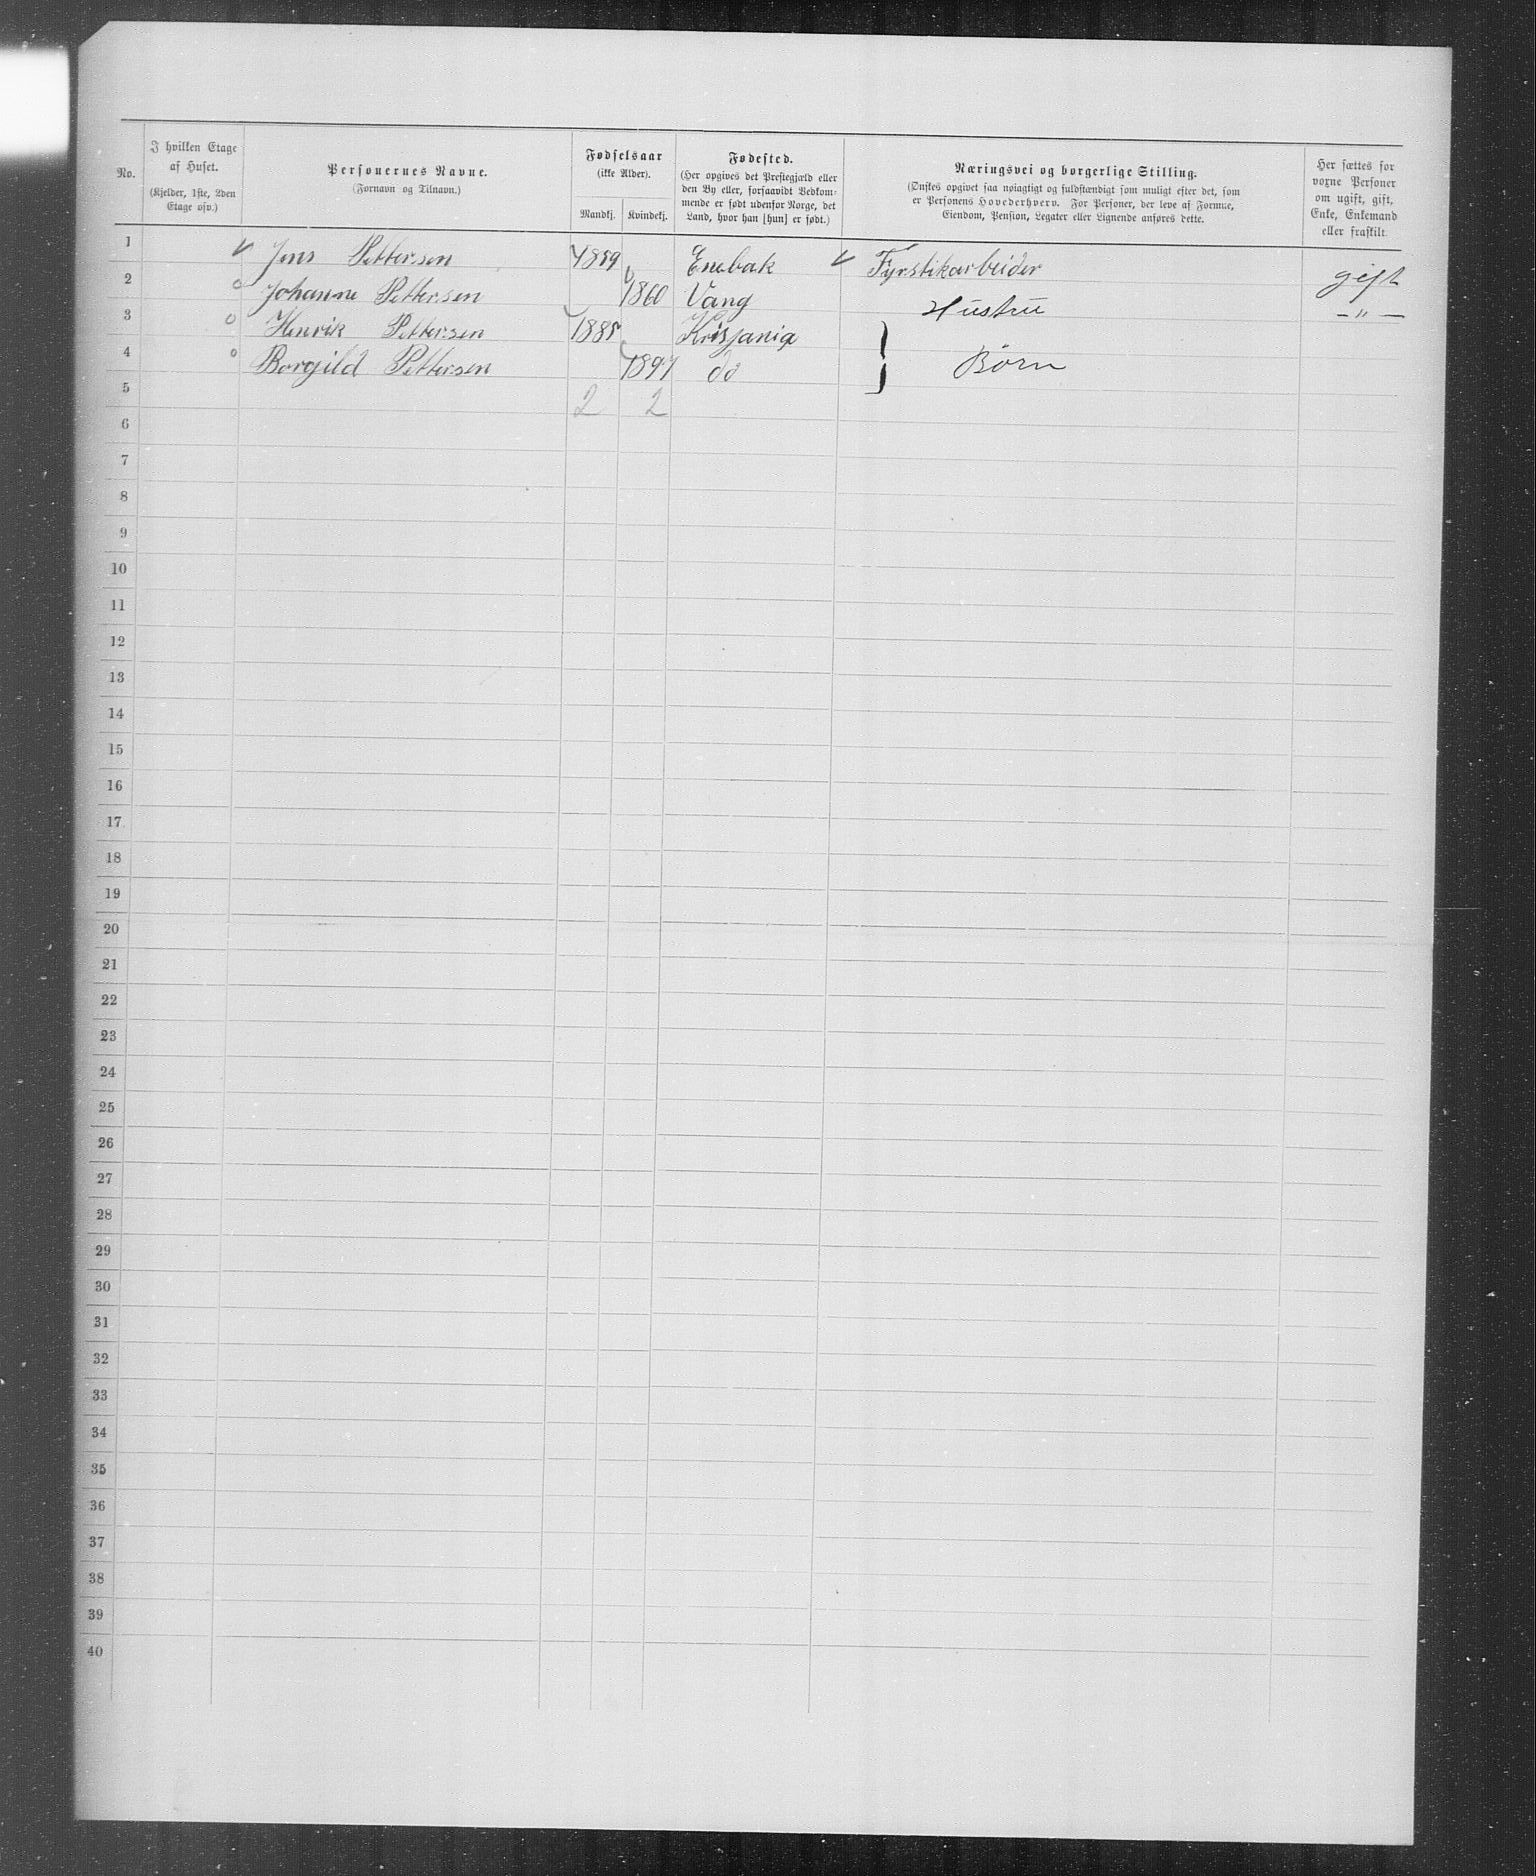 No.
I hvilken Etage
af Huset.
(Kjelder, 1ste, 2den
Etage osv.)
Personernes Navne.
(Fornavn og Tilnavn.)
Fødselsaar
(ikke Alder).
Mandkj. Kvindekj.
Fødested.
(Her opgives det Prestegjæld eller
den By eller, forsaavidt Vedkom-
mende er født udenfor Norge, det
Land, hvor han [hun] er født.)
Næringsvei og borgerlige Stilling.
(Ønskes opgivet saa nøiagtigt og fuldstændigt som muligt efter det, som
er Personens Hovederhverv. For Personer, der leve af Formue,
Eiendom, Pension, Legater eller Lignende anføres dette.
Her sættes for
voxne Personer
om ugift, gift,
Enke, Enkemand
eller fraskilt.
1 Jens Pettersen 1859 Enebak Fyrstikarbeider gift
2 Johanne Pettersen 1860 Vang Hustru —"—
3 Henrik Pettersen 1885 Krisjania
4 Borgild Pettersen 1897 do } Börn
5 2 2
6
7
8
9
10
11
12
13
14
15
16
17
18
19
20
21
22
23
24
25
26
27
28
29
30
31
32
33
34
35
36
37
38
39
40